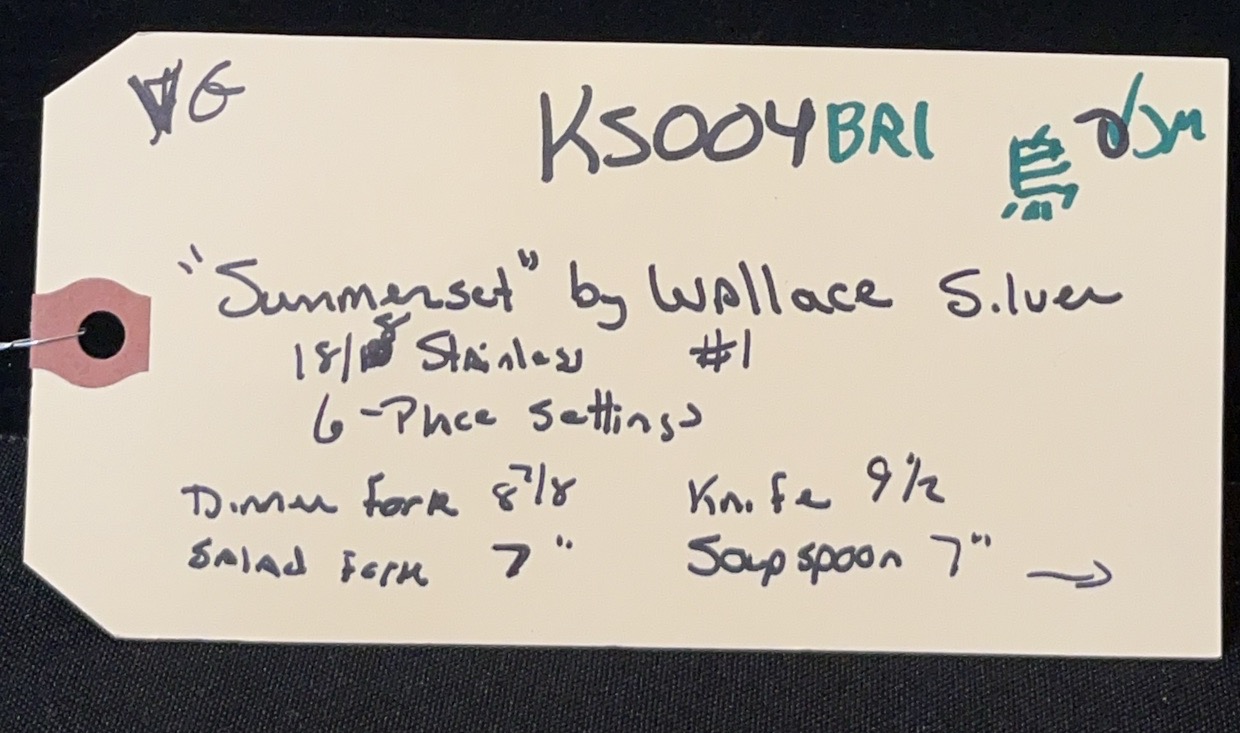 VG
KS004BRI
"Summerset" by Wallace Silver
18/8 Stainless #1
6-Place Settings
Dinner Fork 8 7/8 Knife 9 1/2
Salad Fork 7" Soup spoon 7" →